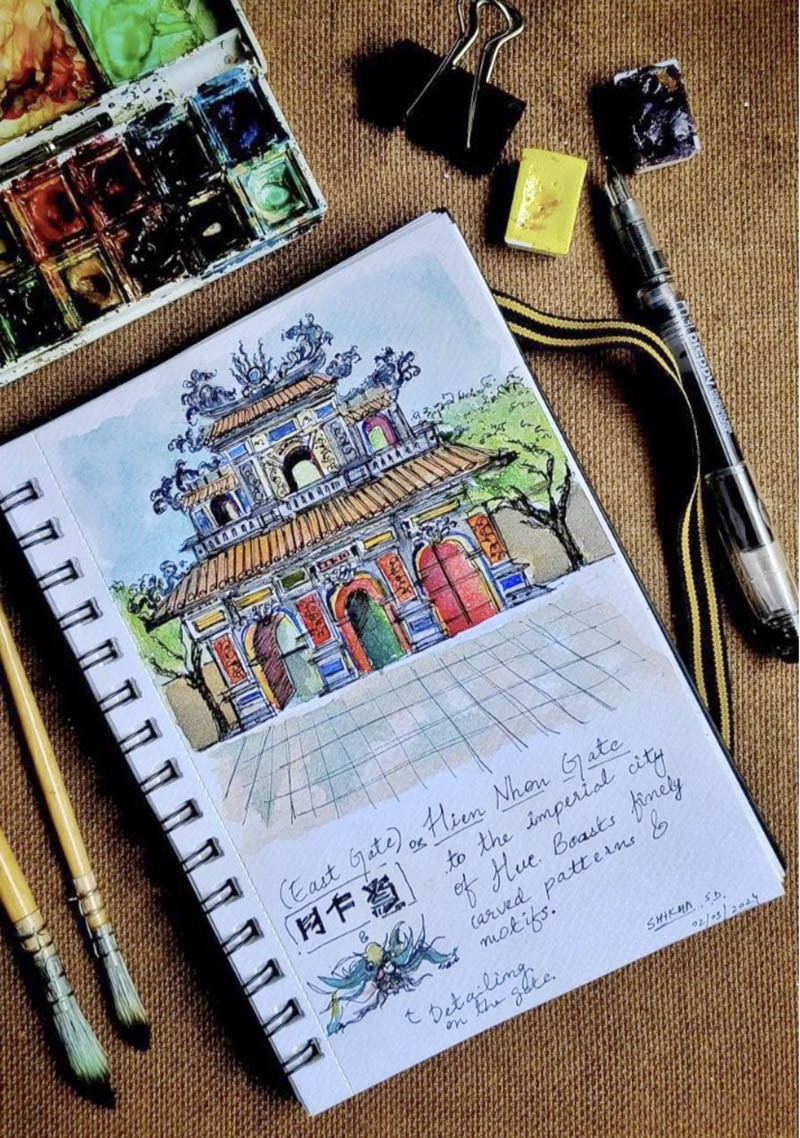 (East Gate) or Hien Nhon Gate
to the imperial city
of Hue. Boasts finely
carved patterns &
motifs.
&
Detailing
on the gate.
SHIKHA .S.D.
02/05/2024